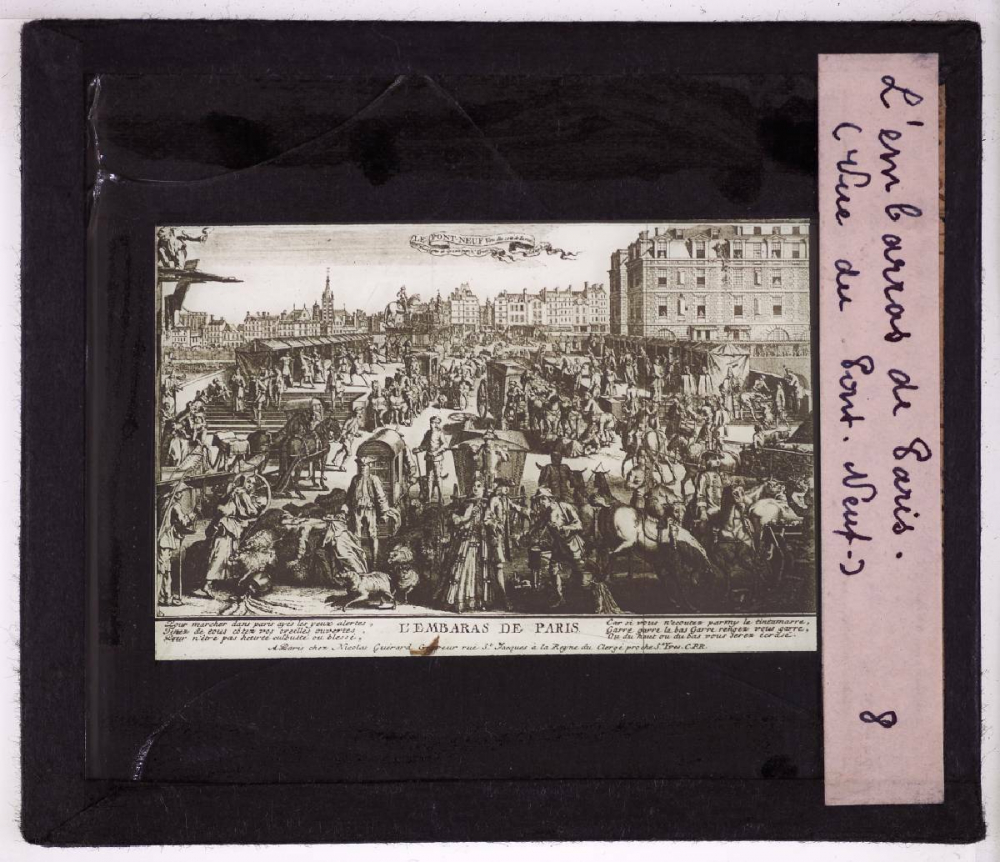 L'embarras de Paris.
(Vue du Pont-Neuf-)
8
LE PONT NEUF
Pour marcher dans paris ayés les yeux alertes,
Tenez de tous côtez vos oreilles ouvertes,
Pour n'être pas heurté culbuté ou blessé,
L'EMBARAS DE PARIS
Car si vous n'écoutez parmy le tintamarre,
Garre garre la bas Garre rengez vous garre,
Ou du haut ou du bas vous serez écrasé.
A Paris chez Nicolas Guérard Graveur rue St. Jacques à la Reyne du Clergé proche St. Yves. C.P.R.